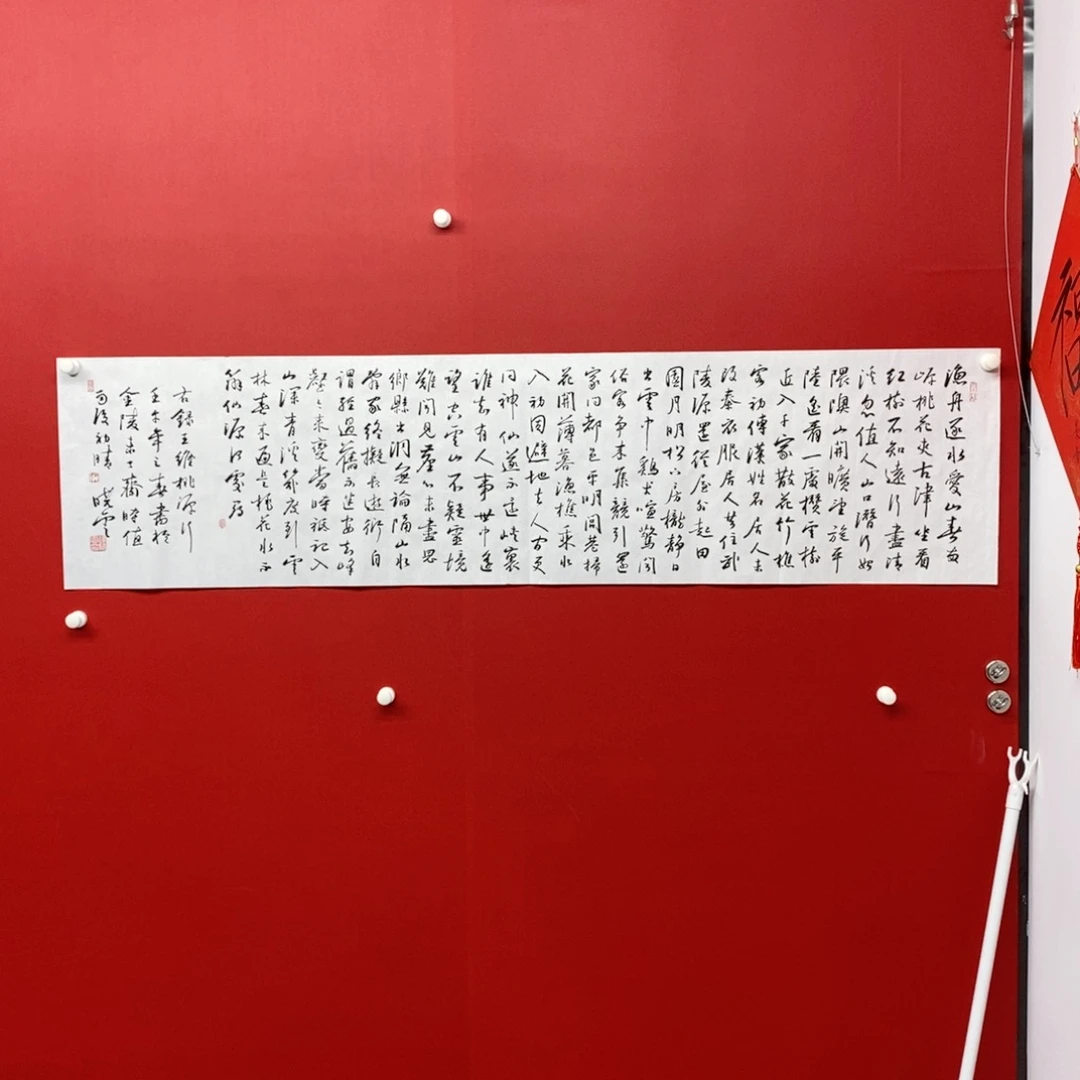 漁舟逐水愛山春兩
岸桃花夾古津坐看
紅樹不知遠行盡清
溪忽值人山口潛行始
隈隩山開曠望旋平
陸遙看一處攢雲樹
近入千家散花竹樵
客初傳漢姓名居人未
改秦衣服居人共住武
陵源還從物外起田
園月明松下房櫳靜日
出雲中鷄犬喧驚聞
俗客爭來集競引還
家問都邑平明閭巷掃
花開薄暮漁樵乘水
入初因避地去人間更
問神仙遂不還峽裏
誰知有人事世中遙
望空雲山不疑靈境
難聞見塵心未盡思
鄉縣出洞無論隔山水
辭家終擬長遊衍自
謂經過舊不迷安知峰
壑今來變當時祇記入
山深青溪幾度到雲
林春來遍是桃花水不
辨仙源何處尋
右錄王維桃源行
壬寅年之春書於
金陵齋時值
雨後初晴 曉雲
福